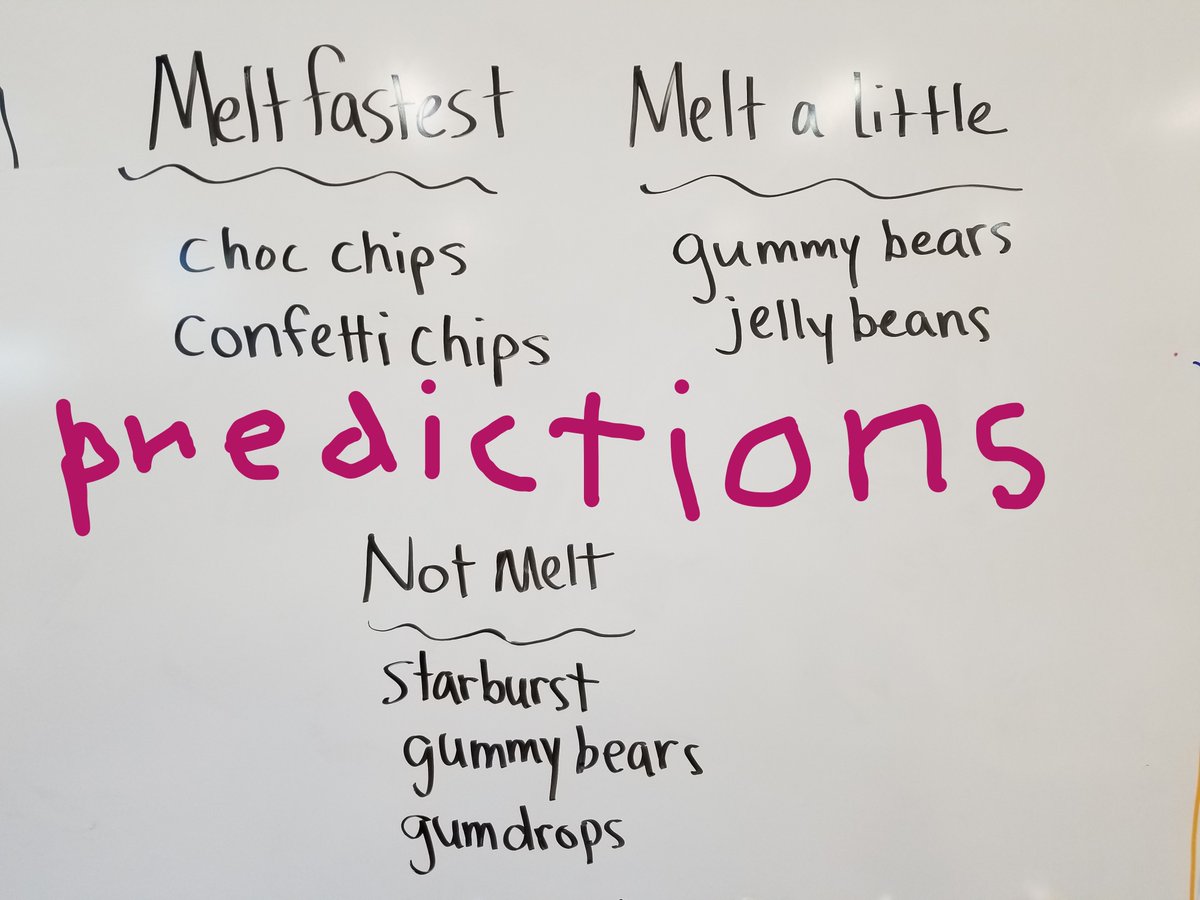 Melt fastest
choc chips
confetti chips
Melt a little
gummy bears
jelly beans
predictions
Not Melt
starburst
gummy bears
gumdrops